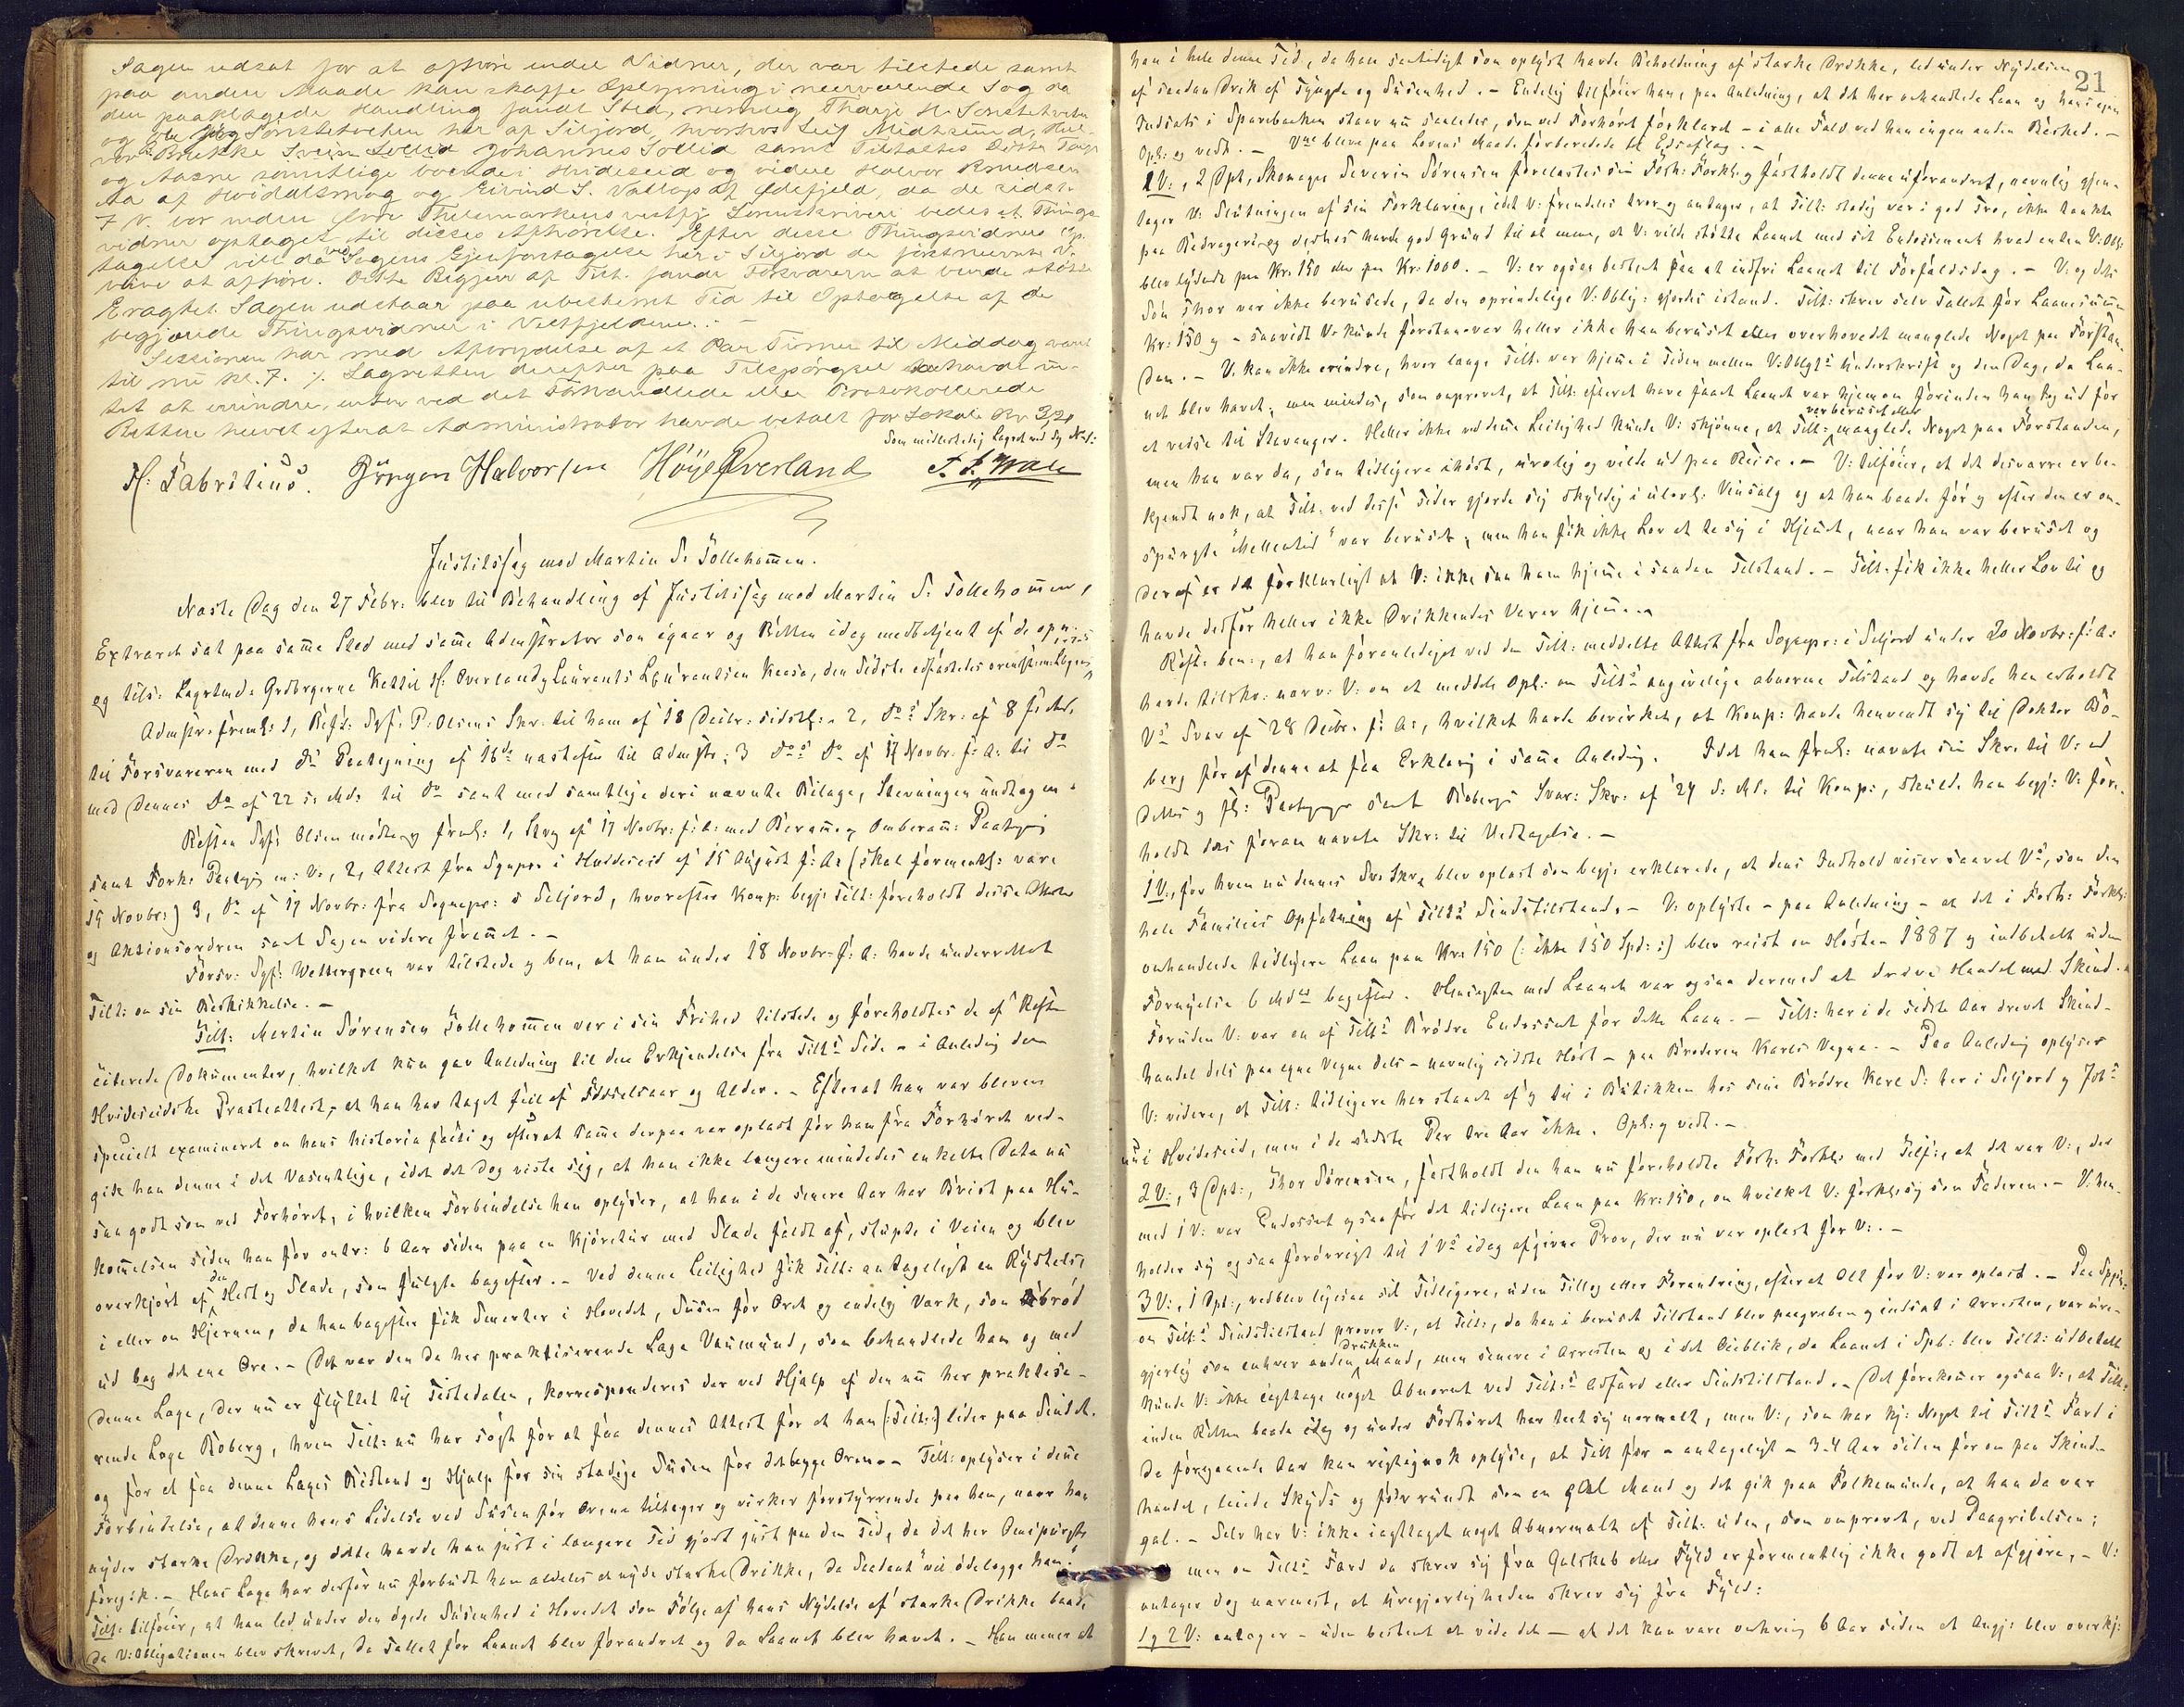 Sagen udsat for at afhøre endel Vidner, der var tilstede samt
paa anden Maade kan skaffe Oplysning i nærværende Sag da
den paaklagede Handling fandt Sted, nemlig Tharje H.
og Ole her af Siljord, hvorhos Leif Midtsund,
Brække Svein Sollid Johannes Sollid samt Tiltaltes
og Aasne samtlige boende i Hvideseid og videre Halvor Knudsen
Aa af Hviddesmog og Eivind S. af da de sidste
7 V. bor under Øvre Thelemarkens vestfj. Sorenskriveri bedes et Things-
vidner optaget til disses Afhørelse. Efter disse Thingsvidners Op-
tagelse vil da ved Sagens Gjenforetagelse her i Siljord de førstnævnte V.
være at afhøre. Dette Begjær af Tilt. fandt Forsvareren at burde støtte
Eragtet: Sagen udstaar paa ubestemt Tid til Optagelse af de
begjærede Thingsvidner i Vestfjeldene. –
Sessionen har med Afbrydelse af et Par Timer til Middag varet
til nu Kl. 7. Lagretten derefter paa Tilspørgsel havde in-
tet at erindre, enten ved det Forhandlede eller Protokollerede
Retten hævet efterat Administrator havde betalt for Lokale Kr 3,20
Som midlertidig Lagret ved dg Nat:
H: Fabritius. Jørgen Halvorsen Høye Øverland
Justitssag mod Martin S. Tollehommen.
Næste Dag den 27 Febr: blev til Behandling af Justitssag mod Martin S. Tollehommen,
Extraret sat paa samme Sted med samme Admstrator som igaar og Retten idag medbetjent af de opn:
og tils: Lagrtmd: Grdbrgerne Kettil H. Overland og Laurants Laurantsen Kaasa, den Sidste
Admstr. freml: 1, Refst: Sgf. P. Olsens Skr: til ham af 18 Decbr. sidstl: 2, Do's Skr: af 8 f. Md.
til Forsvareren med Ds Paategning af 16de næstefter til Admstr: 3 Do's Do af 17 Novbr. f. A. til Do
med Dennes Do af 22 s. Md: til Do samt med samtlige deri nævnte Bilage, Stevningen undtagen.
Refsten Sgf. Olsen mødte og freml: 1, Stvg af 17 Novbr: f: A: med Beramm: og Omberamm: Paategn:
samt Fork: Paategn: m: V:, 2, Attest fra Sgnpr. i Hvideseid af 15 August f: A: (skal formentl: være
15 Novbr:) 3, Do af 17 Novbr: fra Sognepr: i Seljord, hvorefter Komp: begj: Tilt: foreholdt disse Akter
og Aktionsordren samt Sagen videre fremmet. –
Forsv: Sgf: Wettergreen var tilstede og bem, at han under 18 Novbr: f: A: havde underrettet
Tilt: om sin Beskikkelse. –
Tilt: Martin Sørensen Tollehommen var i sin Frihed tilstede og foreholdtes de af Refst.
citerede Dokumenter, hvilket kun gav Anledning til den Erkjendelse fra Tilts Side – i Anledng den
Hvideseidske Præsteattest, – at han har taget feil af Fødselsaar og Alder. – Efterat han var bleven
specielt examineret om hans historia facti og efterat Samme derpaa var oplæst for ham fra Forhøret ved-
gik han denne i det Væsentlige, idet det dog viste sig, at han ikke længere mindedes enkelte Data nu
saa godt som ved Forhøret, i hvilken Forbindelse han oplyser, at han i de senere Aar har Brist paa Hu-
kommelsen siden han for omtr: 6 Aar siden paa en Kjøretur med Slæde faldt af, stupte i Veien og blev
overkjørt af den Hest og Slæde, som fulgte bagefter. – Ved denne Leilighed fik Tilt: antageligt en Rystelse
i eller om Hjernen, da han bagefter fik Smerter i Hovedet, Susen for Øret og endelig Værk, som brød
ud bag det ene Øre. – Det var den da her praktiserende Læge Vaumund, som behandlede ham og med
denne Læge, der nu er flyttet til Tistedalen, korresponderes der ved Hjælp af den nu her praktise-
rende Læge Boberg, hvem Tilt: nu har søgt for at faa dennes Attest for at han (: Tilt: :) lider paa Sindet.
og for at faa denne Læges Bistand og Hjælp for sin stadige Susen for det begge Øren. – Tilt: oplyser i denne
Forbindelse, at denne hans Lidelse ved Susen for Ørene tiltager og virker forstyrrende paa ham, naar han
nyder stærke Drikke, og dette havde han just i længere Tid gjort just paa den Tid, da det her Omspurgte
foregik. – Hans Læge har derfor nu forbudt ham aldeles at nyde stærke Drikke, da Saadant "vil ødelægge ham."
Tilt: tilføier, at han led under den øgede Susenhed i Hovedet som Følge af hans Nydelse af stærke Drikke baade
da V: Obligationen blev skrevet, da Tallet for Laanet blev forandret og da Laanet blev hævet. – Han mener at
21
han i hele denne Tid, da han samtidigt som oplyst havde Beholdning af stærke Drikke, led under Nydelsen
af saadan Drik af Tyngde og Susenhed. – Endelig tilføier han, paa Anledning, at det her omhandlede Laan og hans egen
Indsats i Sparebanken staar nu saaledes, som ved Forhøret forklaret – i alle Fald ved han ingen anden Besked. –
Opl: og vedt. – Vne bleve paa Lovens Maade forberedede til Edsaflæg. –
1 V:, 2 Dpt, Skomager Severin Sørensen forelæstes sin Forh: Forkl: og fastholdt denne uforandret, nævnlig gjen-
tager V: Slutningen af sin Forklaring, idet V: fremdeles tror og antager, at Tilt: stedse var i god Tro, ikke tænkte
paa Bedrageri og desuden havde god Grund til at mene, at V: vilde støtte Laanet med sit Endossement hvad enten V: Obl:
blev lydende paa Kr. 150 eller paa Kr: 1000. – V: er ogsaa bestemt paa at indfri Laanet til Forfaldsdag. – V: og dets
Søn Thor var ikke berusede, da den oprindelige V: Oblig: gjordes istand. Tilt: skrev selv Tallet for Laanesummen
Kr: 150 og – saavidt V: kunde forstaa – var heller ikke han beruset eller overhovedt manglede Noget paa Forstan-
den. – V. kan ikke erindre, hvor længe Tilt: var hjemme i Tiden mellem V: Oblgts Underskrift og den Dag, da Laa-
net blev hævet; men mindes, som omprovet, at Tilt: efterat have faaet Laanet var hjemom førinden han tog ud for
at reise til Stavanger. Heller ikke ved denne Leilighed kunde V: skjønne, at Tilt: var beruset eller manglede Noget paa Forstanden,
men han var da, som tidligere ihøst, urolig og vilde ud paa Reise. – V: tilføier, at det desværre er be-
kjendt nok, at Tilt: ved disse Tider gjorde sig skyldig i ulovl: Vinsalg og at han baade før og efter den er om-
spurgte "Mellemtid" var beruset; men han fik ikke Lov at te sig i Hjemmet, naar han var beruset og
deraf er det forklarligt at V: ikke saa ham hjemme i saadan Tilstand. – Tilt: fik ikke heller Lov til og
havde derfor heller ikke Drikkendes Varer hjemme. –
Refst: bem:, at han foranlediget ved den Tilt: meddelte Attest fra Sognepr: i Seljord under 20 Novbr: f: A:
havde tilskr: nærv: V: om at meddele Opl: om Tilts angivelige abnorme Tilstand og havde han erholdt
Vs Svar af 28 Decbr. f: A:, hvilket havde bevirket, at Komp: havde henvendt sig til Doktor Bo-
berg for af denne at faa Erklæring i samme Anledng. Idet han freml: nævnte sin Skr: til V: ad
dettes og fl: Paategnger samt Bobergs Svar: Skr: af 24 d: Md. til Komp:, skulde han begj: V: fore-
holdt det foran nævnte Skr: til Vedtagelse. –
1 V:, for hvem nu dennes Skr: blev oplæst som begj: erklærede, at dens Indhold viser saavel Vs, som den
hele Families Opfatning af Tilts Sindstilstand. – V: oplyste – paa Anledning – at det i Forh: Forkl:
omhandlede tidligere Laan paa Kr: 150 (: ikke 150 Spd: :) blev reist om Høsten 1887 og indbetalt uden
Fornyelse 6 Mdr bagefter. Hensigten med Laanet var ogsaa dermed at drive Handel med Skind. –
Foruden V: var en af Tilts Brødre Endossent for dette Laan. – Tilt: har i de sidste Aar drevet Skind-
handel dels paa egne Vegne dels – nævnlig sidste Høst – paa Broderen Karls Vegne. – Paa Anledng oplyser
V: videre, at Tilt: tidligere har staaet af og til i Butikken hos sine Brødre Karl S: her i Seljord og Johs
nu i Hvideseid, men i de sidste Par tre Aar ikke. Opl: og vedt. –
2 V:, 3 Dpt:, Thor Sørensen, fastholdt den ham nu foreholdte Forh: Forkl: med Tilf:, at det var V:, der
med 1 V: var Endossent ogsaa for det tidligere Laan paa Kr: 150, om hvilket V: forkl: sig som Faderen. – V: hen-
holder sig ogsaa forøvrigt til 1 Vs idag afgivne Prov, der nu var oplæst for V:. –
3 V:, 1 Dpt:, vedblev ligesaa sit Tidligere, uden Tillæg eller Forandring, efterat Alt for V: var oplæst. – Paa Spgsm:
om Tilts Sindstilstand prover V:, at Tilt:, da han i beruset Tilstand blev paagreben og indsat i Arresten, var ure-
gjerlig som enhver anden drukken Mand, men senere i Arresten og i det Øieblik, da Laanet i Spb: blev Tilt: udbetalt
kunde V: ikke iagttage noget Abnormt ved Tilts Adfærd eller Sindstilstand. – Det forekommer ogsaa V:, at Tilt:
inden Retten baade idag og under Forhøret har teet sig normalt, men V:, som har kj: Noget til Tilts Færd i
de foregaaende Aar kan rigtignok oplyse, at Tilt for – antageligt – 3-4 Aar siden for om paa Skind-
handel, leiede Skyds og foer rundt som en gal Mand og det gik paa Folkemunde, at han da var
gal. – Selv har V: ikke iagttaget noget Abnormalt af Tilt: uden, som omprovet, ved Paagribelsen;
men om Tilts Færd da skrev sig fra Galskab eller Fyld er formentlig ikke godt at afgjøre, – V:
antager dog nærmest, at Uregjerligheden skrev sig fra Fyld:
1 g 2 V: antager – uden bestemt at vide det – at det kan være omkring 6 Aar siden at Angj: blev overkj: